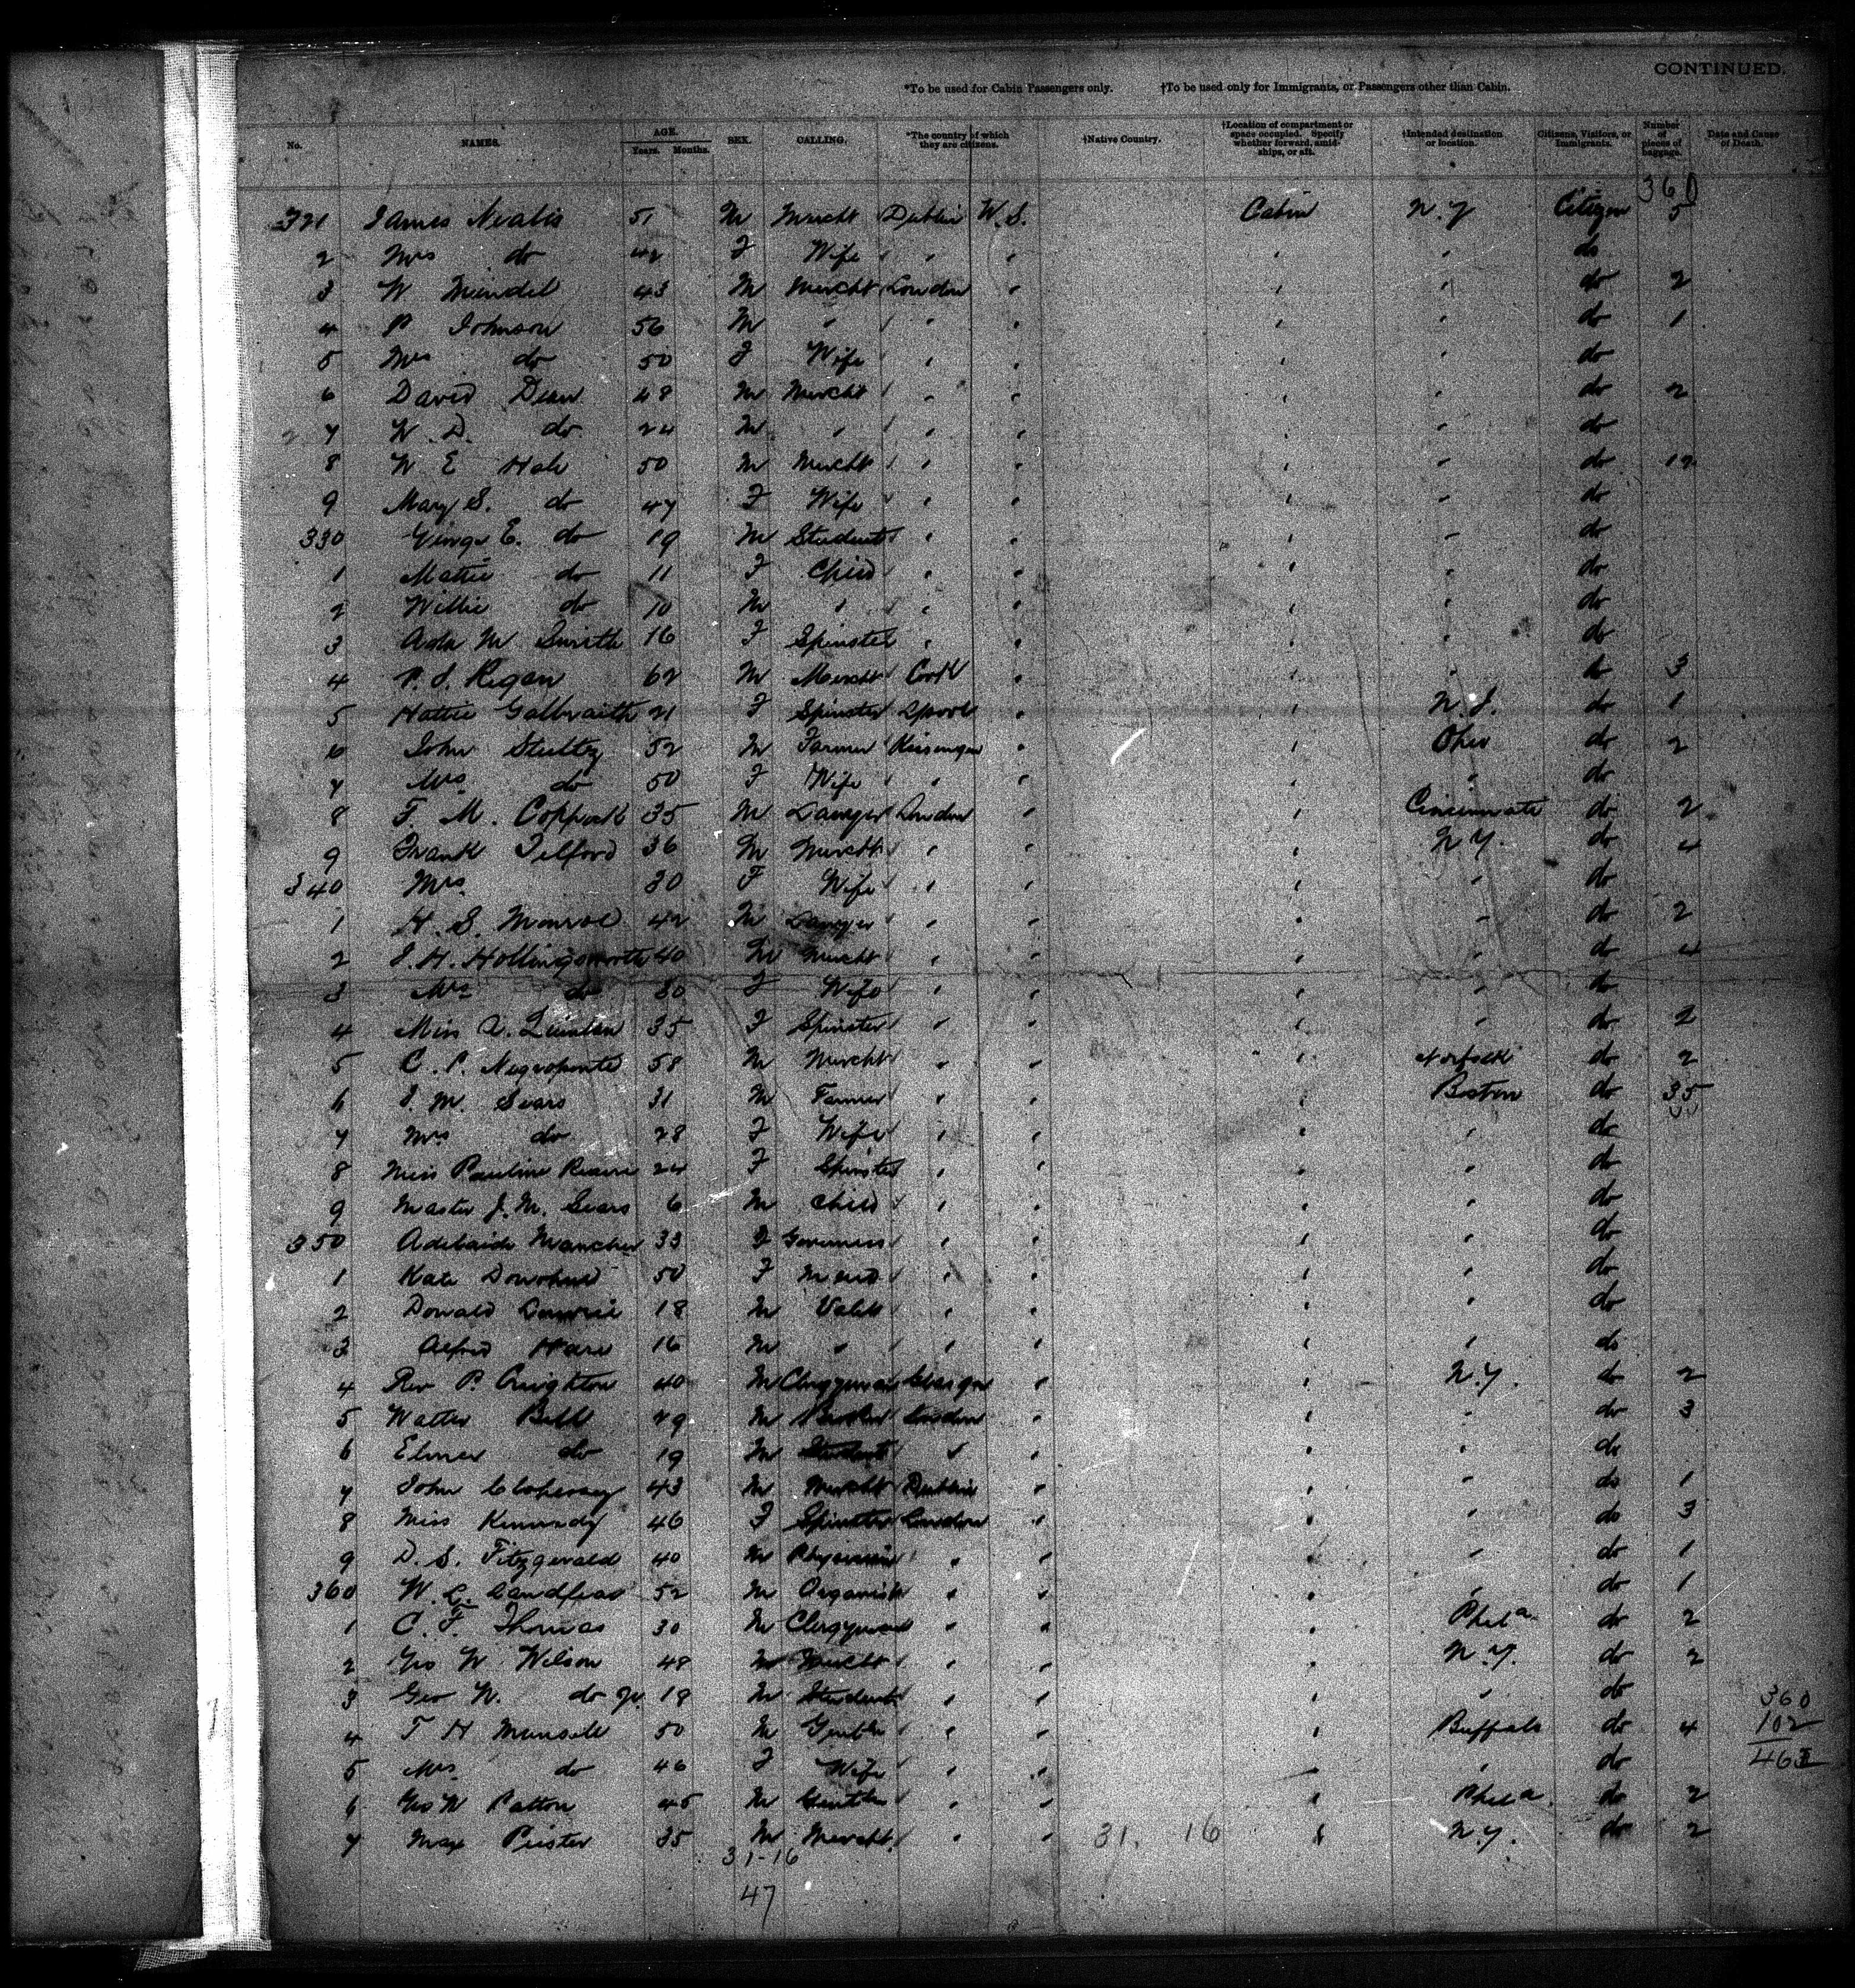 CONTINUED.
*To be used for Cabin Passengers only. †To be used only for Immigrants, or Passengers other than Cabin.
No. NAMES. AGE. Years. Months. SEX. CALLING. *The country of which they are citizens. †Native Country. †Location of compartment or space occupied. Specify whether forward, amidships, or aft. †Intended destination or location. Citizens, Visitors, or Immigrants. Number of pieces of baggage. Date and Cause of Death.
360
321 James 51 M Mercht Dublin U.S. Cabin N.Y Citizen 5
2 Mrs do 42 F Wife " " " " do
3 W Mindel 43 M Mercht London " " " do 2
4 P Johnson 56 M " " " " " do 1
5 Mrs do 50 F Wife " " " " do
6 David Dean 48 M Mercht " " " " do 2
7 W. D. do 24 M " " " " " do
8 W E Hale 50 M Mercht " " " " do 12
9 Mary S. do 47 F Wife " " " " do
330 George E. do 19 M Student " " " " do
1 Mattie do 11 F Child " " " " do
2 Willie do 10 M " " " " " do
3 Ada M Smith 16 F Spinster " " " " do
4 P. J. Regan 62 M Mercht Cork " " " do 3
5 Hattie Galbraith 21 F Spinster Lpool " " N.J. do 1
6 John 52 M Farmer Kissengen " " Ohio do 2
7 Mrs do 50 F Wife " " " " do
8 F. M. Coppock 35 M Lawyer London " " Cincinnati do 2
9 Frank Telford 36 M Mercht " " " N.Y. do 4
340 Mrs 30 F Wife " " " " do
1 H. S. Monroe 42 M Lawyer " " " " do 2
2 J. H. Hollingsworth 40 M Mercht " " " " do 4
3 Mrs do 30 F Wife " " " " do
4 Miss A. Quinlan 35 F Spinster " " " " do 2
5 C. P. Negroponte 58 M Mercht " " " Norfolk do 2
6 J. M. Sears 31 M Farmer " " " Boston do 35
7 Mrs do 28 F Wife " " " " do
8 Miss Pauline 24 F Spinster " " " " do
9 Master J. M. Sears 6 M Child " " " " do
350 Adelaide 33 F Governess " " " " do
1 Kate Donohue 50 F Maid " " " " do
2 Donald Lawrie 18 M Valet " " " " do
3 Alfred Hare 16 M " " " " " do
4 Rev P. Creighton 40 M Clergyman Glasgow " " N.Y. do 2
5 Walter Bell 49 M London " " " do 3
6 Elmer do 19 M Student " " " " do
7 John 43 M Mercht Dublin " " " do 1
8 Miss Kennedy 46 F Spinster London " " " do 3
9 D. S. Fitzgerald 40 M Physician " " " " do 1
360 W. C. 52 M Organist " " " " do 1
1 C. F. Thomas 30 M Clergyman " " " Phila do 2
2 Geo W Wilson 48 M Mercht " " " N.Y. do 2
3 Geo W. do Jr 18 M Student " " " " do
4 T H Munsell 50 M Gentln " " " Buffalo do 4
5 Mrs do 46 F Wife " " " " do
6 Geo W Patton 45 M Gentln " " " Phila. do 2
7 Max 35 M Mercht " " 31. 16 " N.Y. do 2
360
102
463
31-16
47